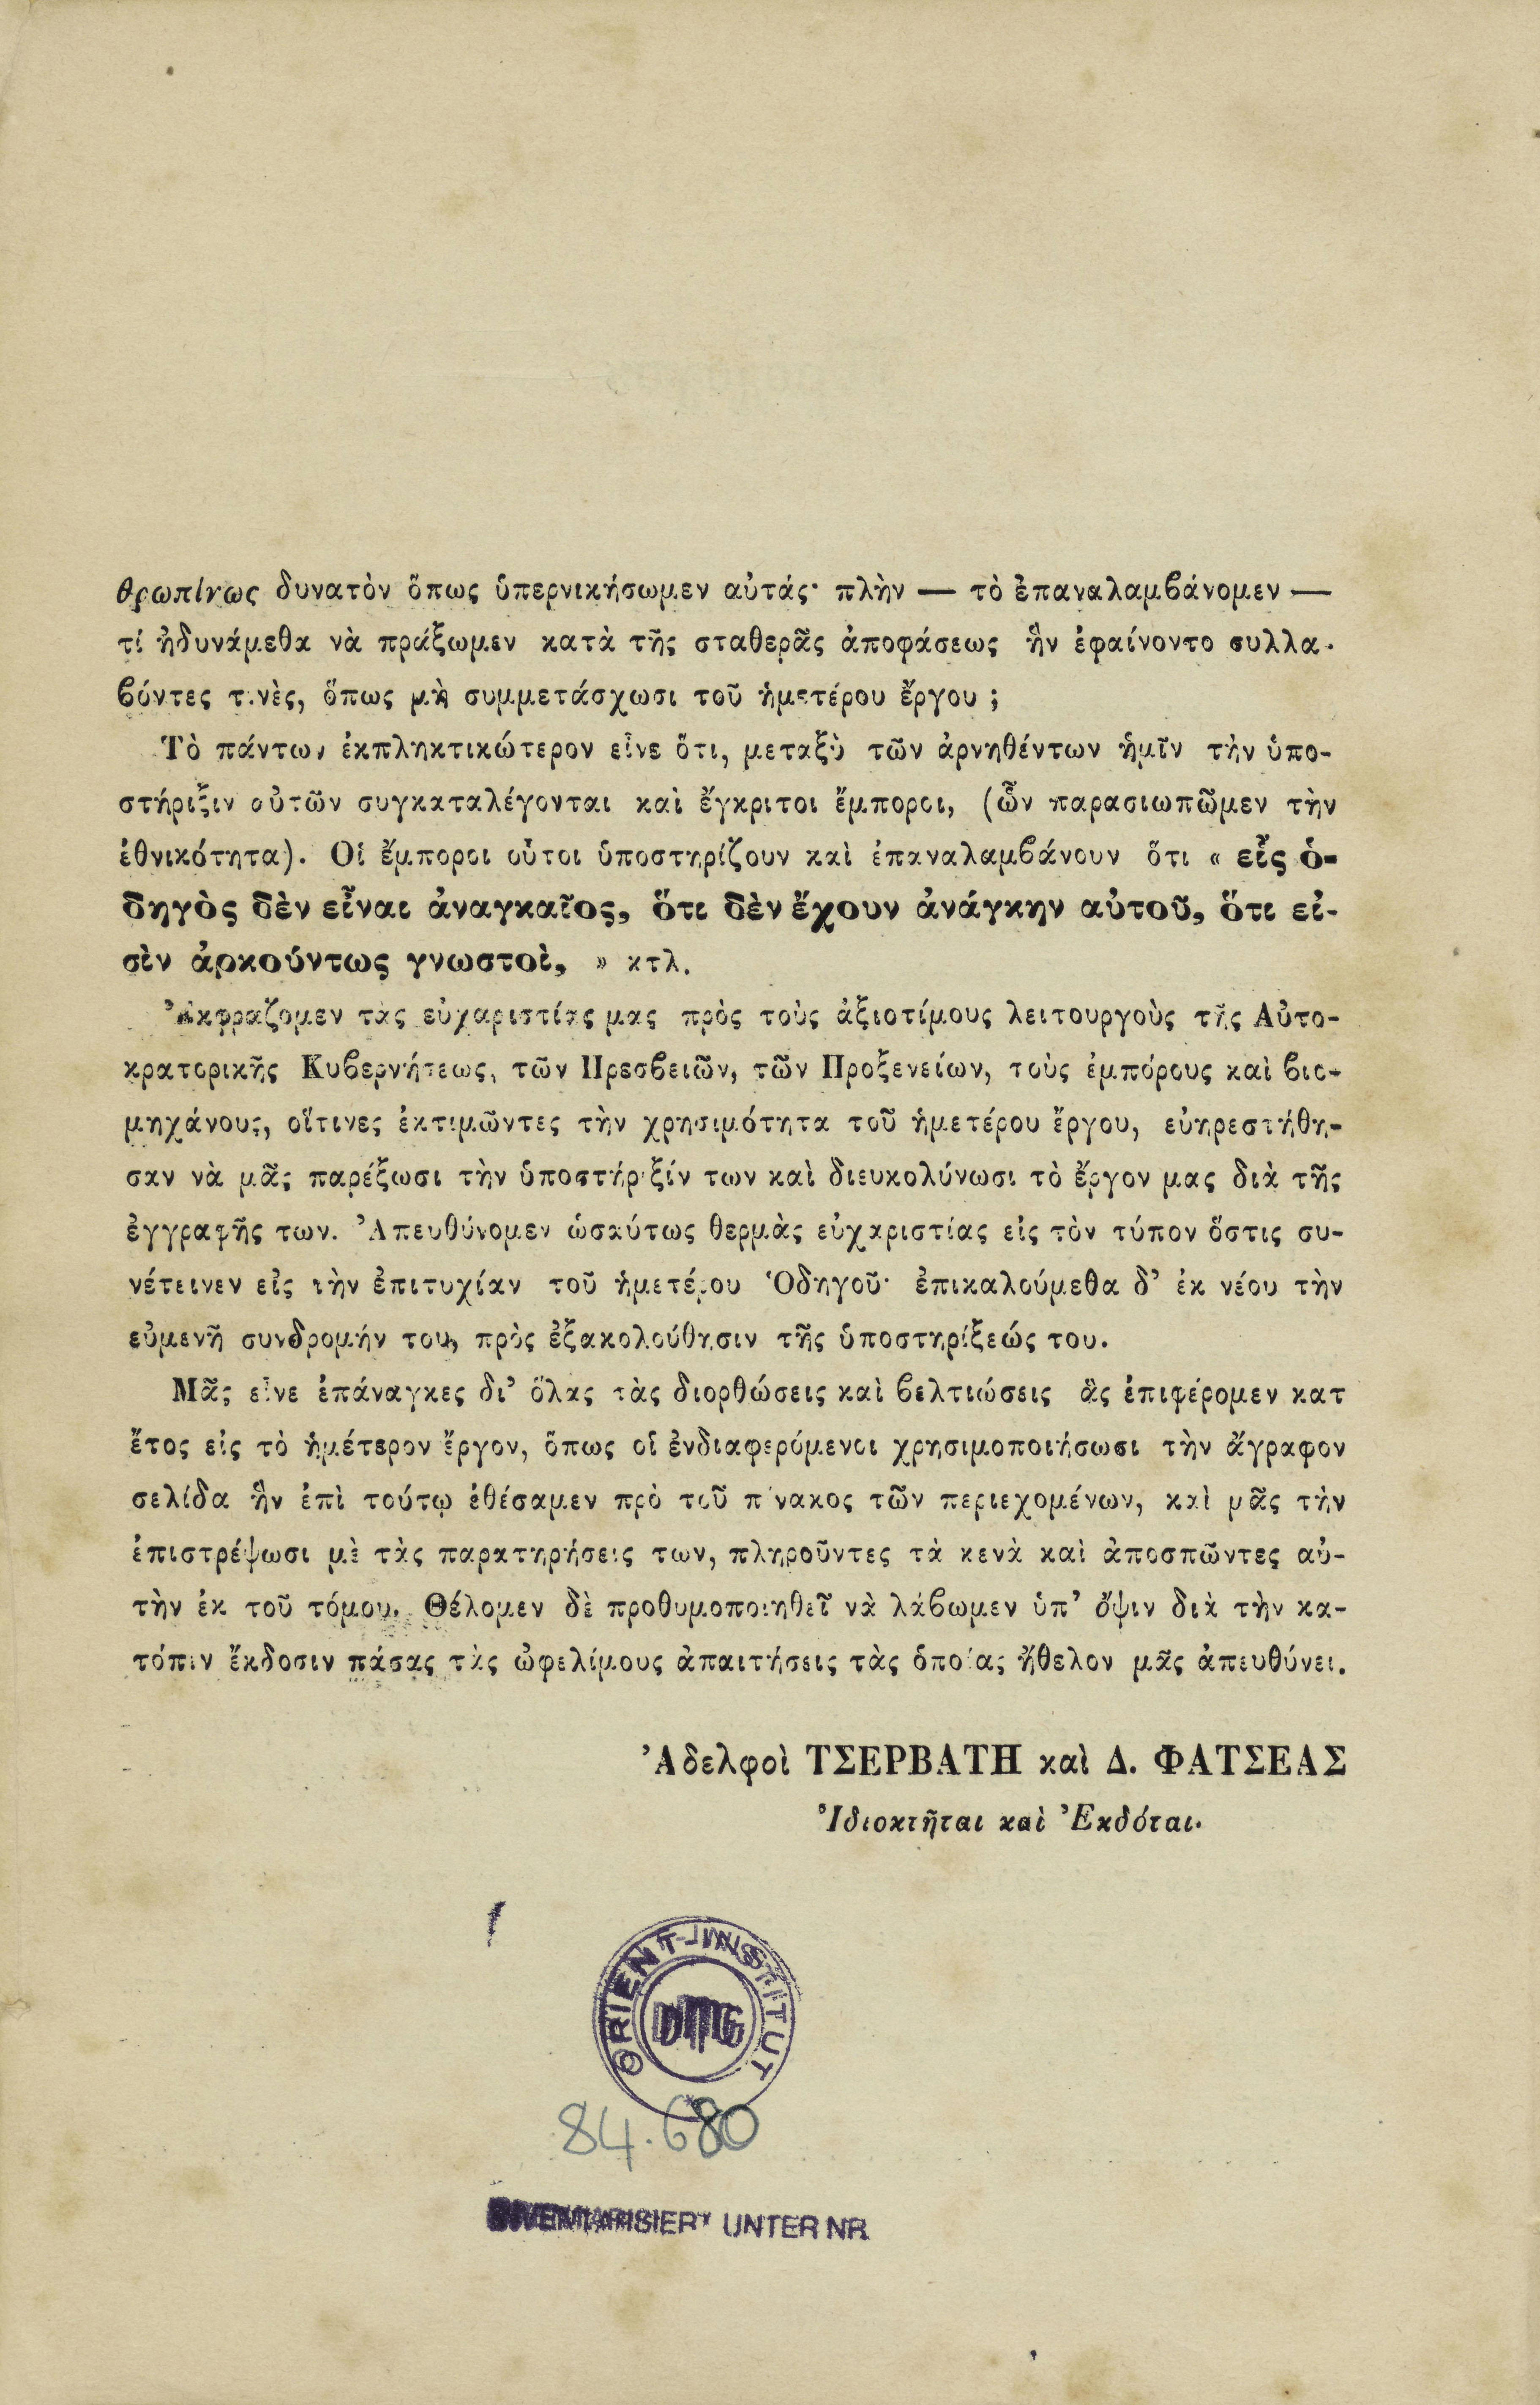 θρωπίνως δυνατὸν ὅπως ὑπερνικήσωμεν αὐτάς· πλὴν — τὸ ἐπαναλαμβάνομεν —
τί ἠδυνάμεθα νὰ πράξωμεν κατὰ τῆς σταθερᾶς ἀποφάσεως ἣν ἐφαίνοντο συλλα-
βόντες τινὲς, ὅπως μὴ συμμετάσχωσι τοῦ ἡμετέρου ἔργου ;
Τὸ πάντων ἐκπληκτικώτερον εἶνε ὅτι, μεταξὺ τῶν ἀρνηθέντων ἡμῖν τὴν ὑπο-
στήριξιν αὐτῶν συγκαταλέγονται καὶ ἔγκριτοι ἔμποροι, (ὧν παρασιωπῶμεν τὴν
ἐθνικότητα). Οἱ ἔμποροι οὗτοι ὑποστηρίζουν καὶ ἐπαναλαμβάνουν ὅτι « εἷς ὁ-
δηγὸς δὲν εἶναι ἀναγκαῖος, ὅτι δὲν ἔχουν ἀνάγκην αὐτοῦ, ὅτι εἰ-
σὶν ἀρκούντως γνωστοὶ, » κτλ.
Ἐκφράζομεν τὰς εὐχαριστίας μας πρὸς τοὺς ἀξιοτίμους λειτουργοὺς τῆς Αὐτο-
κρατορικῆς Κυβερνήσεως, τῶν Πρεσβειῶν, τῶν Προξενείων, τοὺς ἐμπόρους καὶ βιο-
μηχάνους, οἵτινες ἐκτιμῶντες τὴν χρησιμότητα τοῦ ἡμετέρου ἔργου, εὐηρεστήθη-
σαν νὰ μᾶς παρέξωσι τὴν ὑποστήριξίν των καὶ διευκολύνωσι τὸ ἔργον μας διὰ τῆς
ἐγγραφῆς των. Ἀπευθύνομεν ὡσαύτως θερμὰς εὐχαριστίας εἰς τὸν τύπον ὅστις συ-
νέτεινεν εἰς τὴν ἐπιτυχίαν τοῦ ἡμετέρου Ὁδηγοῦ· ἐπικαλούμεθα δ' ἐκ νέου τὴν
εὐμενῆ συνδρομήν του, πρὸς ἐξακολούθησιν τῆς ὑποστηρίξεώς του.
Μᾶς εἶνε ἐπάναγκες δι' ὅλας τὰς διορθώσεις καὶ βελτιώσεις ἃς ἐπιφέρομεν κατ
ἔτος εἰς τὸ ἡμέτερον ἔργον, ὅπως οἱ ἐνδιαφερόμενοι χρησιμοποιήσωσι τὴν ἄγραφον
σελίδα ἣν ἐπὶ τούτῳ ἐθέσαμεν πρὸ τοῦ πίνακος τῶν περιεχομένων, καὶ μᾶς τὴν
ἐπιστρέψωσι μὲ τὰς παρατηρήσεις των, πληροῦντες τὰ κενὰ καὶ ἀποσπῶντες αὐ-
τὴν ἐκ τοῦ τόμου. Θέλομεν δὲ προθυμοποιηθεῖ νὰ λάβωμεν ὑπ' ὄψιν διὰ τὴν κα-
τόπιν ἔκδοσιν πάσας τὰς ὠφελίμους ἀπαιτήσεις τὰς ὁποίας ἤθελον μᾶς ἀπευθύνει.
Ἀδελφοὶ ΤΣΕΡΒΑΤΗ καὶ Δ. ΦΑΤΣΕΑΣ
Ἰδιοκτῆται καὶ Ἐκδόται.
ORIENT-INSTITUT
DMG
84.680
INVENTARISIERT UNTER NR.